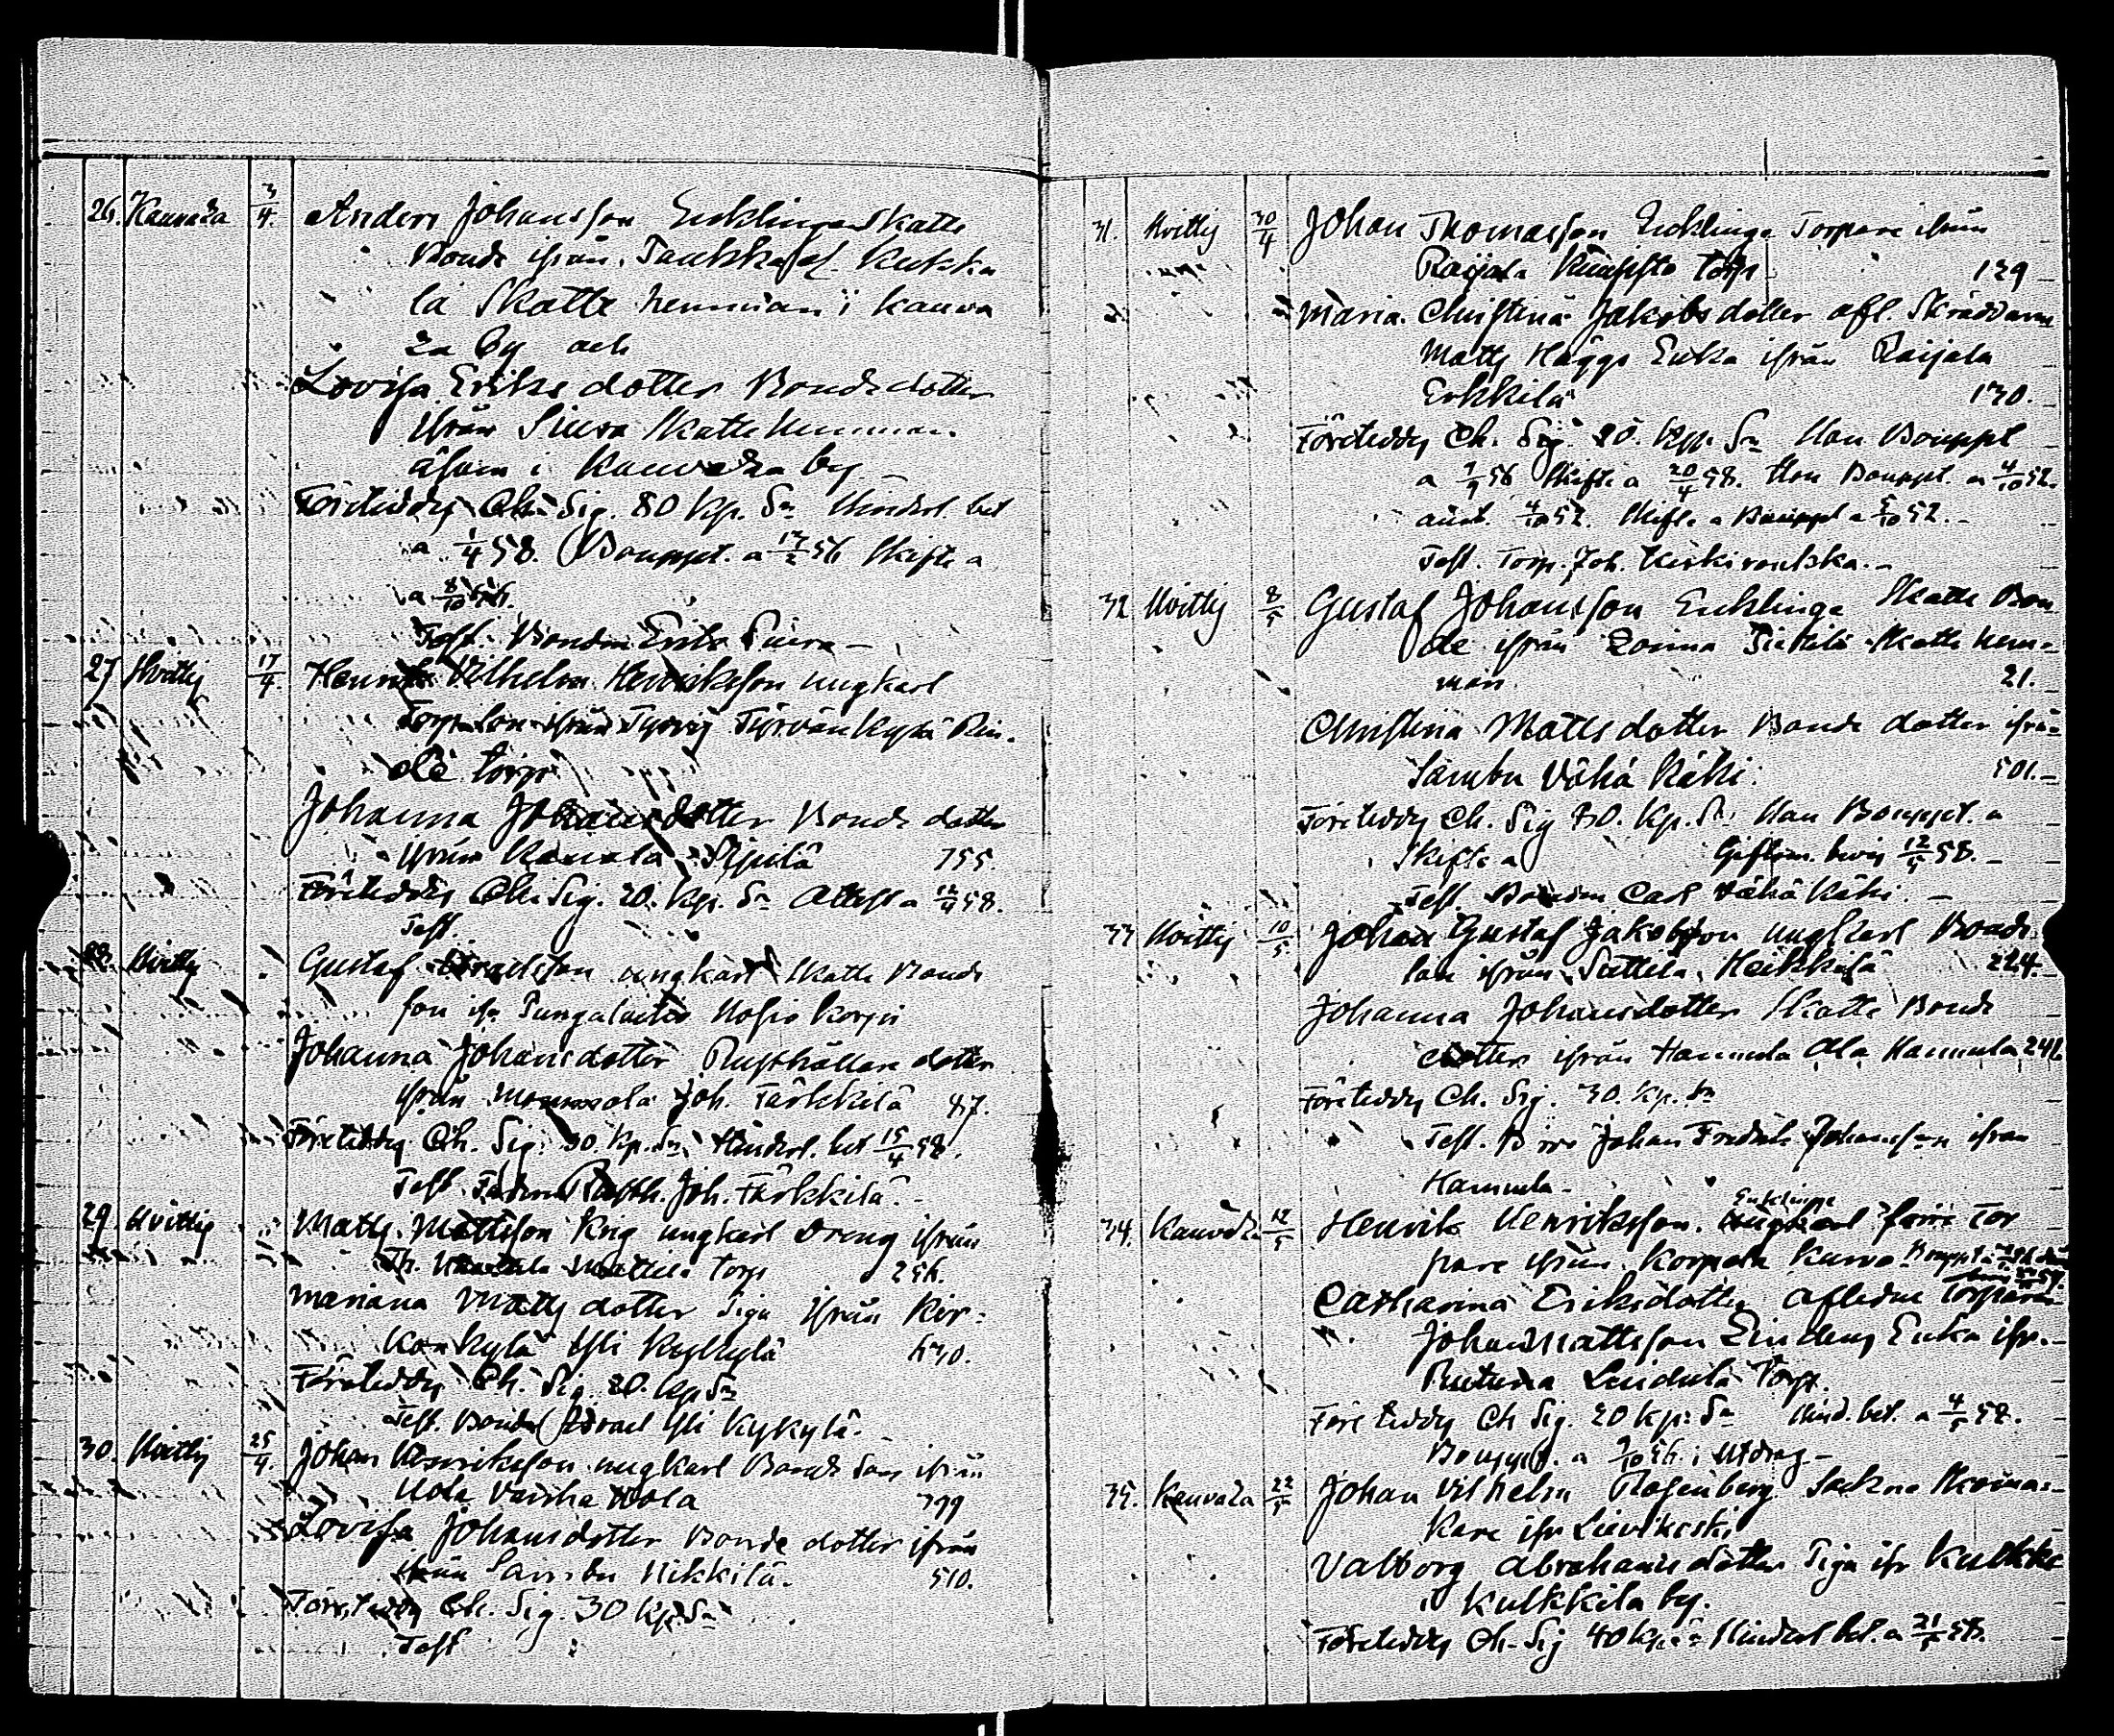 26. Kauvaza 3/4. Anders Johansson Enklinge Skatte
Bonde ifrån Kutska
la Skatte hemman i Kauva
za By och
Lovisa Eriks dotter Bonde dotter
ifrån Siura Skatte Hemman
i Kauvaza by
Företeddes Ch. Sig. 80 Kp. Sr Hinderl. bet
a 1/4 58. Bouppt. a 17/2 56 Skifte a
a 8/10 56.
Test. Bonden Erik Siura
27 Hvittis 17/4. Henrik Vilhelm Henriksson ungkarl
Torp. Son ifrån Tyrvis Tyrvänkylä
torp
Johanna Johansdotter Bonde dotter
ifrån Karhula Sipilä 755.
Företeddes Ch. Sig. 20. Kp. Sr Attest a 12/4 58.
Test.
28. Hvittis Gustaf Israelsson ungkarl Skatte Bonde
son ifr. Pungalaitio Uosio Korpi
Johanna Johansdotter Rusthållare dotter
ifrån Mommola Joh. Tärkkilä 87.
Företeddes Ch. Sig. 30. Kp. Sr Hinderl. bet 15/4 58.
Test. Fadren Rusth. Joh. Tärkkilä.
29. Hvittis Matts Mattsson Krig ungkarl Dreng ifrån
Mattila torp 256.
Mariana Matts dotter Piga ifrån Kir-
konkylä Yli Kykkylä 630.
Företeddes Ch. Sig. 20. Kp Sr
Test. Bonden Israel Yli Kykylä.
30. Hvittis 25/4. Johan Henriksson ungkarl Bonde Son ifrån
Uola Vanha Uola 399
Lovisa Johansdotter Bonde dotter ifrån
Sambu Nikkilä. 510.
Företeddes Ch. Sig. 30 Kp. Sr
Test
31. Hvittis 30/4 Johan Thomasson Enklinge Torpare ifrån
Raijala torp 129
Maria Christina Jakobs dotter afl. Skräddaren
Matts Häggs Enka ifrån Raijala
Erkkilä 130.
Företeddes Ch. Sig. 20. Kp. Sr Han Bouppt
a 7/9 56 Skifte a 20/4 58. Hon Bouppt. a 4/10 52.
4/10 52. Skifte a Bouppt a 5/10 52.
Test. Torp. Joh. Keskiroutska.
32 Hvittis 8/5 Gustaf Johansson Enklinge Skatte Bon
de ifrån Loima Pietilä Skatte hem-
man 21.
Christina Mattsdotter Bonde dotter ifrån
Sambu Vähä Käki. 501.
Företeddes Ch. Sig 30. Kp. Sr Han Bouppt. a
Skifte a Giftom. bevis 12/4 58.
Test. Bonden Carl Vähä Käki.
33 Hvittis 10/5 Johan Gustaf Jakobsson ungkarl Bonde
son ifrån Suttila Heikkilä 224.
Johanna Johansdotter Skatte Bonde
dotter ifrån Hannula Ala Hannula 241.
Företeddes Ch. Sig. 30. Kp. Sr
Test. Johan Fredrik Johansson ifrån
Hannula
34. Kauvaza 12/5 Henrik Henriksson. Enklinge förre Tor
pare ifrån Korpela Kurvo Bouppt.
Catharina Eriksdotter Aflidne Torparen
Johan Mattsson Lindens Enka ifr.
Lindula Torp.
Företeddes Ch Sig. 20 Kp: Sr Hind. bet. a 4/5 58.
Bouppt. a 9/10 56. i Utdrag
35. Kauvaza 22/5 Johan Vilhelm Rosenberg Sockne Skoma-
kare ifr Lievikoski
Valborg Abrahamsdotter Piga ifr Kulkki
Kulkkila by.
Företeddes Ch. Sig 40 Kp. Sr Hinderl. bet. a 21/5 58.